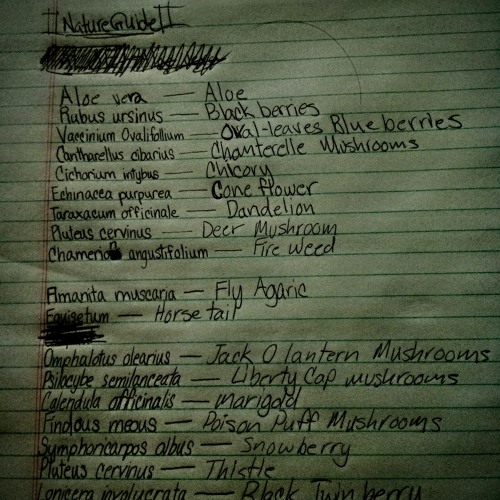 [[NatureGuide]]
Aloe vera — Aloe
Rubus ursinus — Blackberries
Vaccinium Ovalifollium — Oval-leaves Blueberries
Cantharellus cibarius — Chanterelle Mushrooms
Cichorium intybus — Chicory
Echinacea purpurea — Cone flower
Taraxacum officinale — Dandelion
Pluteus cervinus — Deer Mushroom
Chamerion angustifolium — Fire weed
Amanita muscaria — Fly Agaric
Equisetum — Horse tail
Omphalotus olearius — Jack O lantern Mushrooms
Psilocybe semilanceata — Liberty Cap mushrooms
Calendula officinalis — marigold
Finolous meous — Poison Puff Mushrooms
Symphoricarpos albus — Snowberry
Pluteus cervinus — Thistle
Lonicera involucrata — Black Twinberry